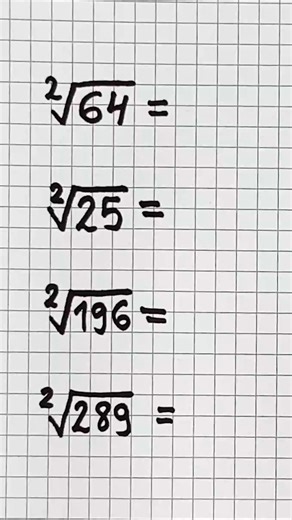 ²√64 =
²√25 =
²√196 =
²√289 =